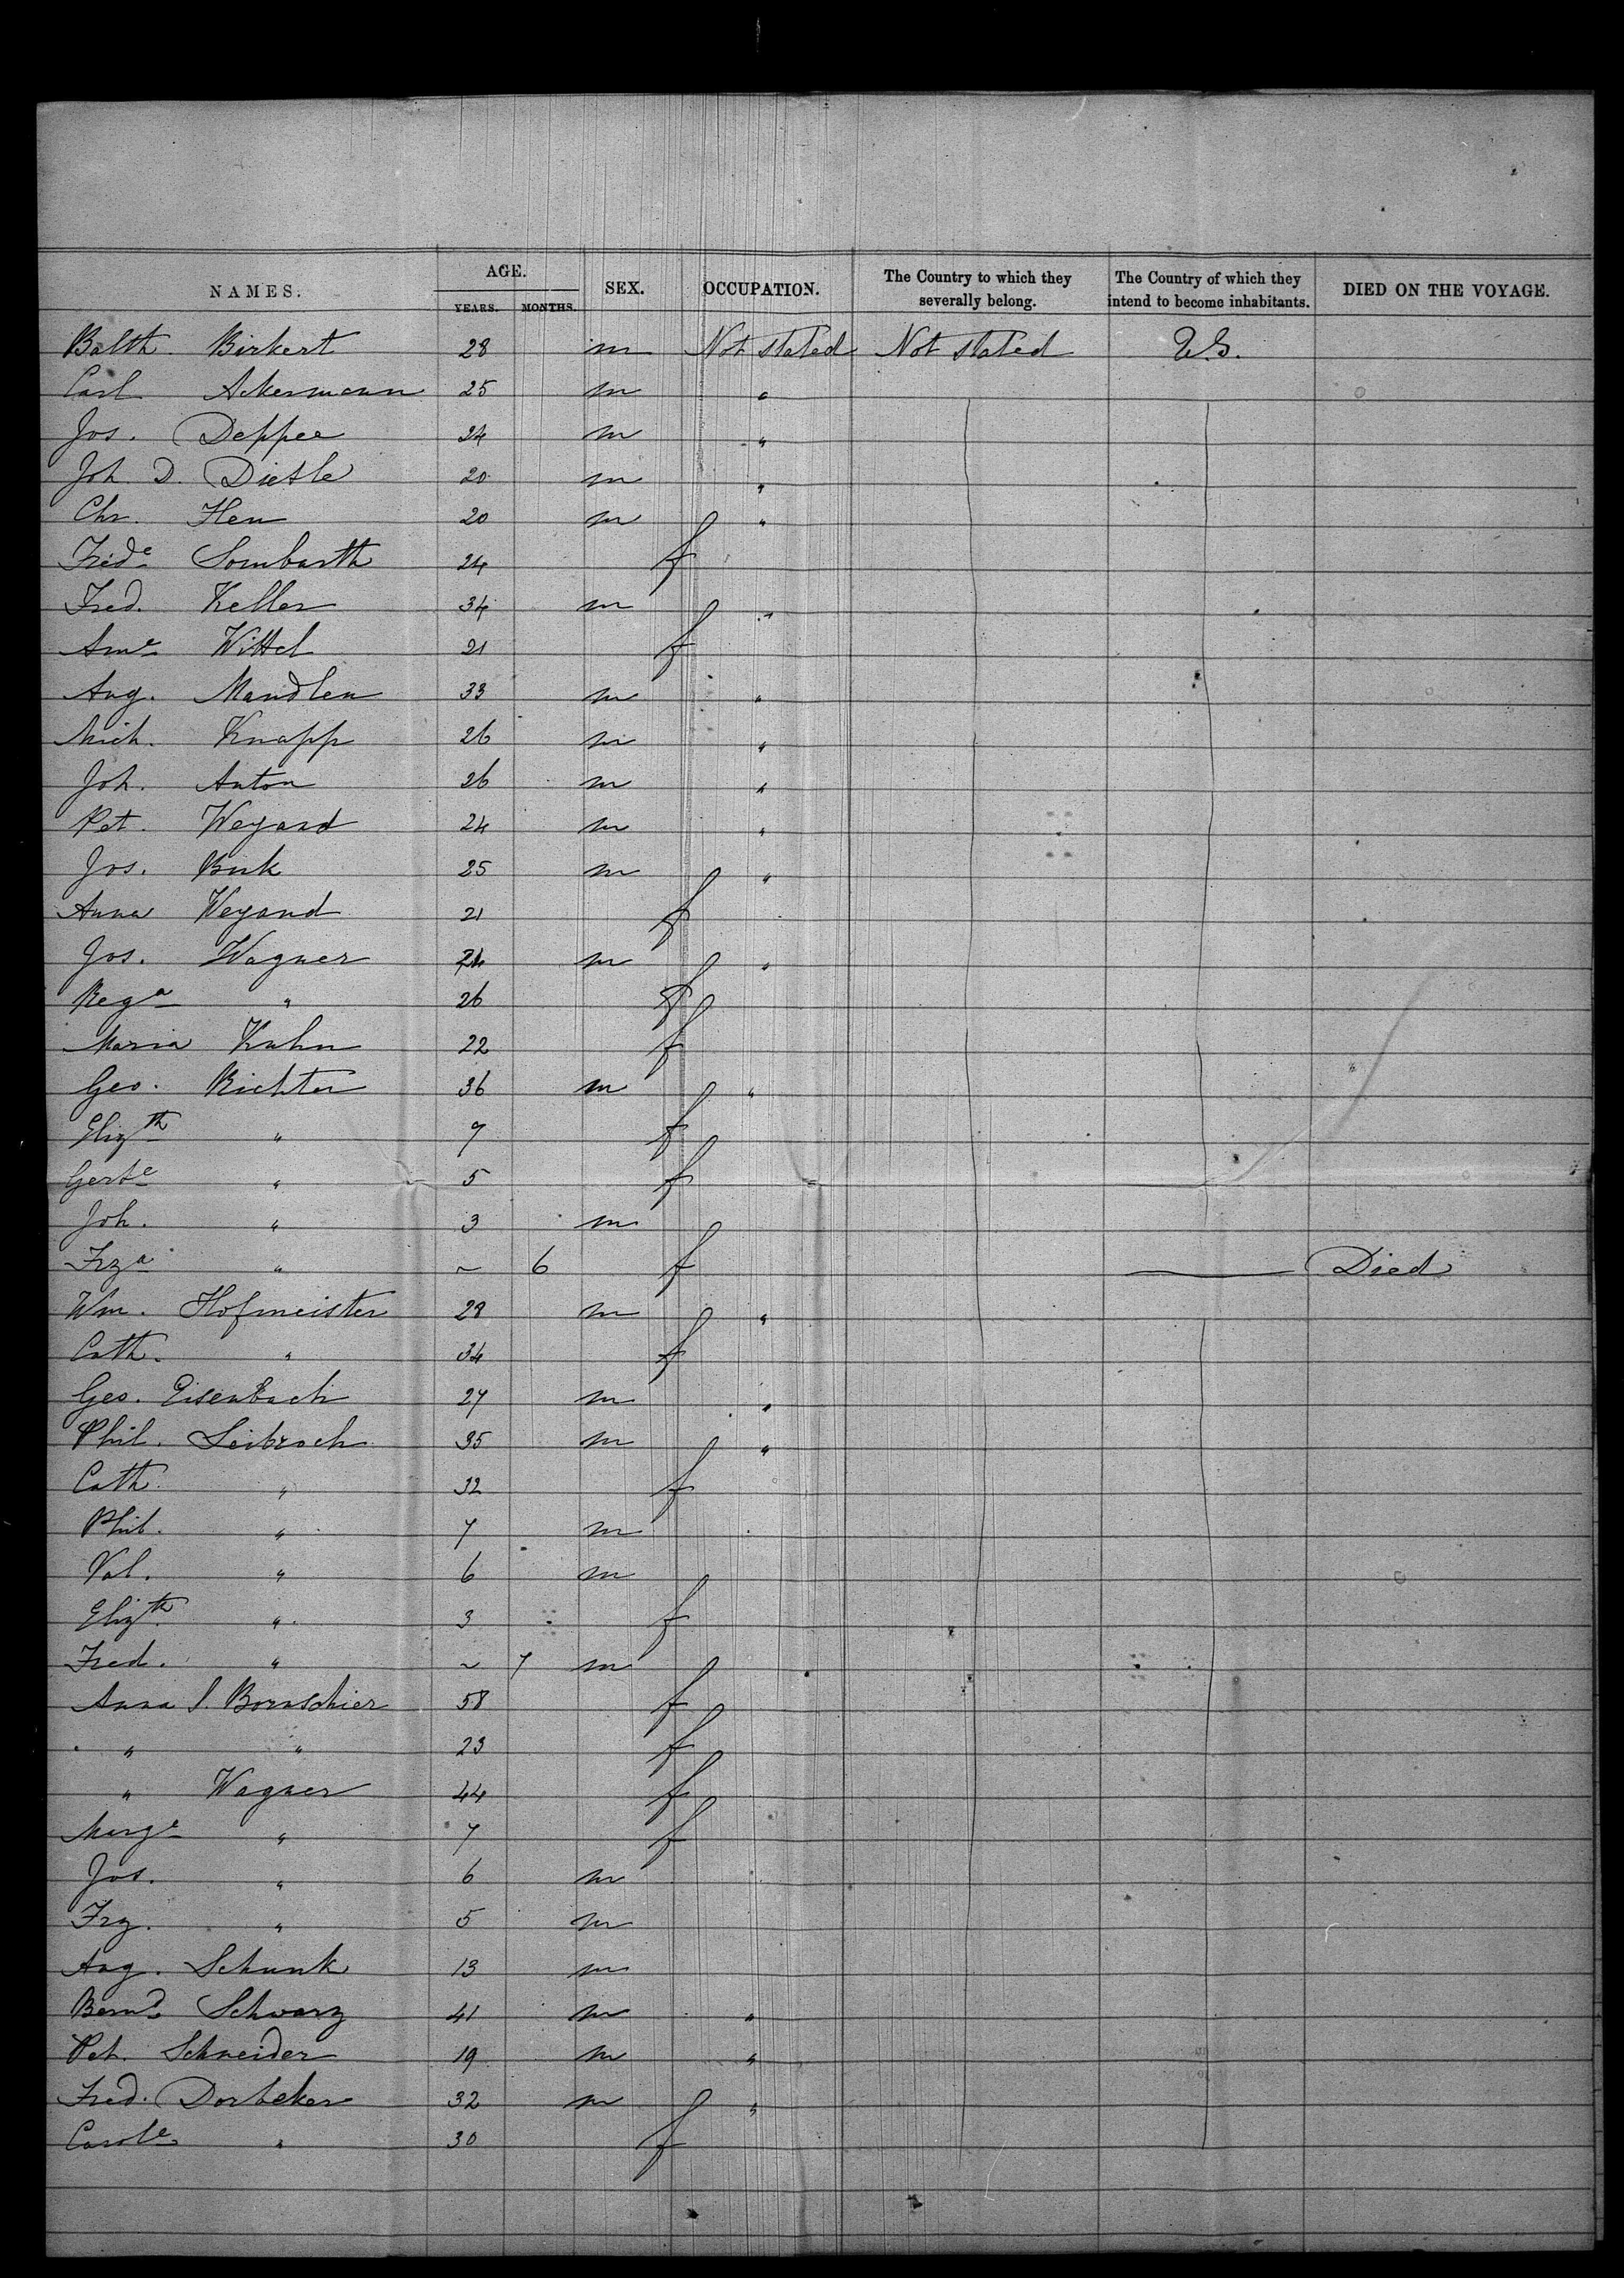 NAMES. AGE. SEX. OCCUPATION. The Country to which they severally belong. The Country of which they intend to become inhabitants. DIED ON THE VOYAGE.
YEARS. MONTHS.
Balth. Birkert 28 m Not stated Not stated U.S.
Carl Ackermann 25 m "
Jos. Deppee 24 m "
Joh. D. Dietle 20 m "
Chr. Hen 20 m "
Fredᵉ Sombarth 24 f
Fred. Keller 34 m "
Amᵉ Wittel 21 f
Aug. Mandlen 33 m "
Mich. Knapp 26 m "
Joh. Anton 26 m "
Pet. Weyand 24 m "
Jos. Buk 25 m "
Anna Weyand 21 f
Jos. Wagner 24 m "
Regᵃ " 26 f
Maria Kuhn 22 f
Geo. Richter 36 m "
Elizth " 9 f
Gertᵉ " 5 f
Joh. " 3 m
Frzᵃ " ~ 6 f Died
Wm. Hofmeister 28 m "
Cath. " 34 f
Geo. Eisenbach 27 m "
Phil. Leibrock 35 m "
Cath. " 32 f
Phil. " 7 m
Val. " 6 m
Elizth " 3 f
Fred. " ~ 7 m
Anna S. Bornschier 58 f
" " 23 f
" Wagner 44 f
Margᵉ " 7 f
Jos. " 6 m
Frz. " 5 m
Aug. Schunk 13 m
Bernd. Schwarz 41 m "
Pet. Schneider 19 m "
Fred. Dorbeker 32 m "
Carolᵉ " 30 f